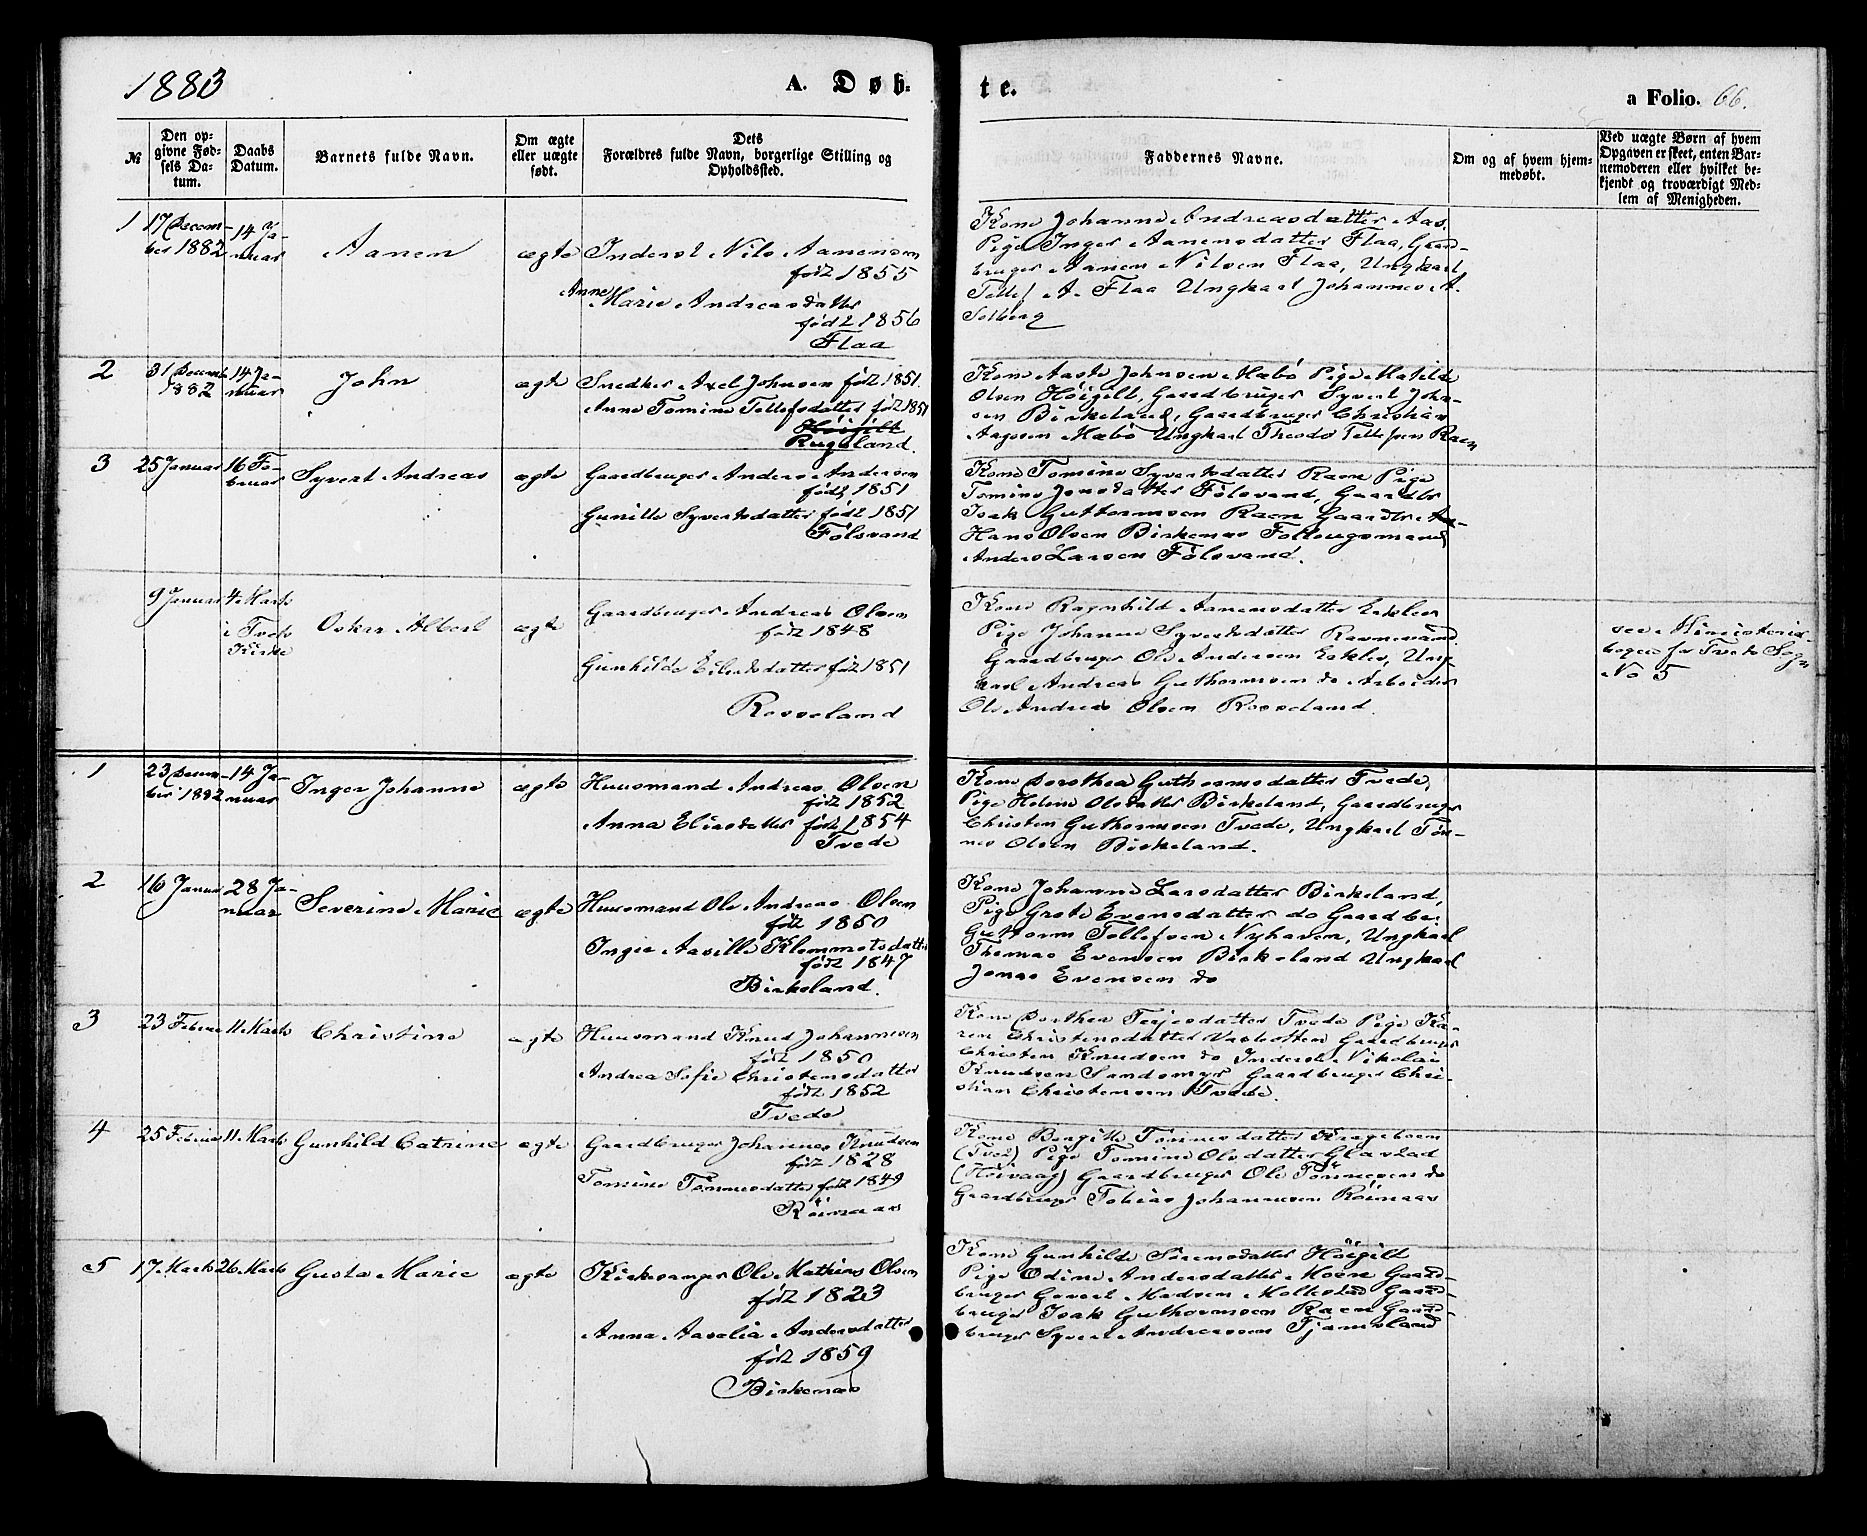 1883
A. Døb-
te.
a Folio. 66.
№
Den op-
givne Fød-
sels Da-
tum.
Daabs
Datum.
Barnets fulde Navn.
Om ægte
eller uægte
født.
Dets
Forældres fulde Navn, borgerlige Stilling og
Opholdssted.
Faddernes Navne.
Om og af hvem hjem-
medøbt.
Ved uægte Børn af hvem
Opgaven er skeet, enten Bar-
nemoderen eller hvilket be-
kjendt og troværdigt Med-
lem af Menigheden.
1
17 Decem-
ber 1882
14 Ja-
nuar
Aanen
ægte
Inderst Nils Aanensen
født 1855
Anne Marie Andreasdatter
født 1856
Flaa
Kone Johanne Andreasdatter Aas,
Pige Inger Aanensdatter Flaa, Gaard-
bruger Aanen Nilsen Flaa, Ungkarl
Tellef A. Flaa Ungkarl Johannes A.
Solberg
2
31 Decemb
1882
14 Ja-
nuar
John
ægte
Snedker Axel Johnsen født 1851.
Anne Tomine Tellefsdatter født 1851
Høigilt
Rugsland.
Kone Aaste Johnsen Mæbø Pige Matilde
Olsen Høigilt, Gaardbruger Syvert John-
sen Birkeland, Gaardbruger Christian
Aagesen Mæbø Ungkarl Theodor Tellefsen Raen
3
25 Januar
16 Fe-
bruar
Syvert Andreas
ægte
Gaardbruger Anders Andersen
født 1851
Gunille Syvertsdatter født 1851
Følsvand
Kone Tomine Syvertsdatter Raen Pige
Tomine Jensdatter Følsvand, Gaardbr
Isak Guttormsen Raen Gaardbr
Hans Olsen Birkenes Følleugsmand
Anders Larsen Følsvand.
9 Januar
4 Marts
i Tveds
Kirke
Oskar Albert
ægte
Gaardbruger Andreas Olsen
født 1848
Gunhilde Eilertsdatter født 1851
Rosseland
Kone Ragnhild Aanensdatter Eikeleer
Pige Johanne Syvertsdatter Ravnevand
Gaardbruger Ole Andersen Eikeler, Ung-
karl Andreas Guthormsen do Arbeider
Ole Andreas Olsen Rosseland.
see Ministerial-
bogen for Tveds Sogn
No 5
1
23 Decem-
ber 1882
14 Ja-
nuar
Inger Johanne
ægte
Huusmand Andreas Olsen
født 1852
Anna Eliasdatter født 1854
Tvede
Kone Dorothea Guthormsdatter Tvede,
Pige Helene Olsdatter Birkeland, Gaardbruger
Christen Guthormsen Tvede, Ungkarl Tøn-
nes Olsen Birkeland.
2
16 Januar
28 Ja-
nuar
Severine Marie
ægte
Huusmand Ole Andreas Olsen
født 1850
Ingie Aasille Klemmetsdatter
født 1847
Birkeland.
Kone Johanne Larsdatter Birkeland,
Pige Grete Evensdatter do Gaardbr.
Guttorm Tellefsen Nyhaven, Ungkarl
Thomas Evensen Birkeland Ungkarl
Jonas Evensen do
3
23 Februar
11 Marts
Christine
ægte
Huusmand Knud Johannesen
født 1850
Andrea Sofie Christensdatter
født 1852
Tvede
Kone Dorthea Terjesdatter Tvede Pige Ka-
ren Christensdatter Gaardbruger
Christen Knudsen do Inderst Nikolai
Knudsen Sandsmyr Gaardbruger Chri-
stian Christensen Tvede.
4
25 Februar
11 Marts
Gunhild Catrine
ægte
Gaardbruger Johannes Knudsen
født 1828
Tomine Tønnesdatter født 1849
Røinaas
Kone Bergitte Tønnesdatter Krageboen
(Tved) Pige Tomine Olsdatter Glastad
(Høivaag) Gaardbruger Ole Tønnesen do
Gaardbruger Tobias Johannesen Røinaas
5
17 Marts
26 Marts
Gusta Marie
ægte
Kirkesanger Ole Mathias Olsen
født 1823
Anna Aasalia Andersdatter
født 1859
Birkenæs
Kone Gunhilde Sørensdatter Høigilt
Pige Odine Andersdatter Moen Gaard-
bruger Govert Madsen Mollestad Gaard-
bruger Isak Guthormsen Raen Gaard-
bruger Syvert Andreassen Tjamsland